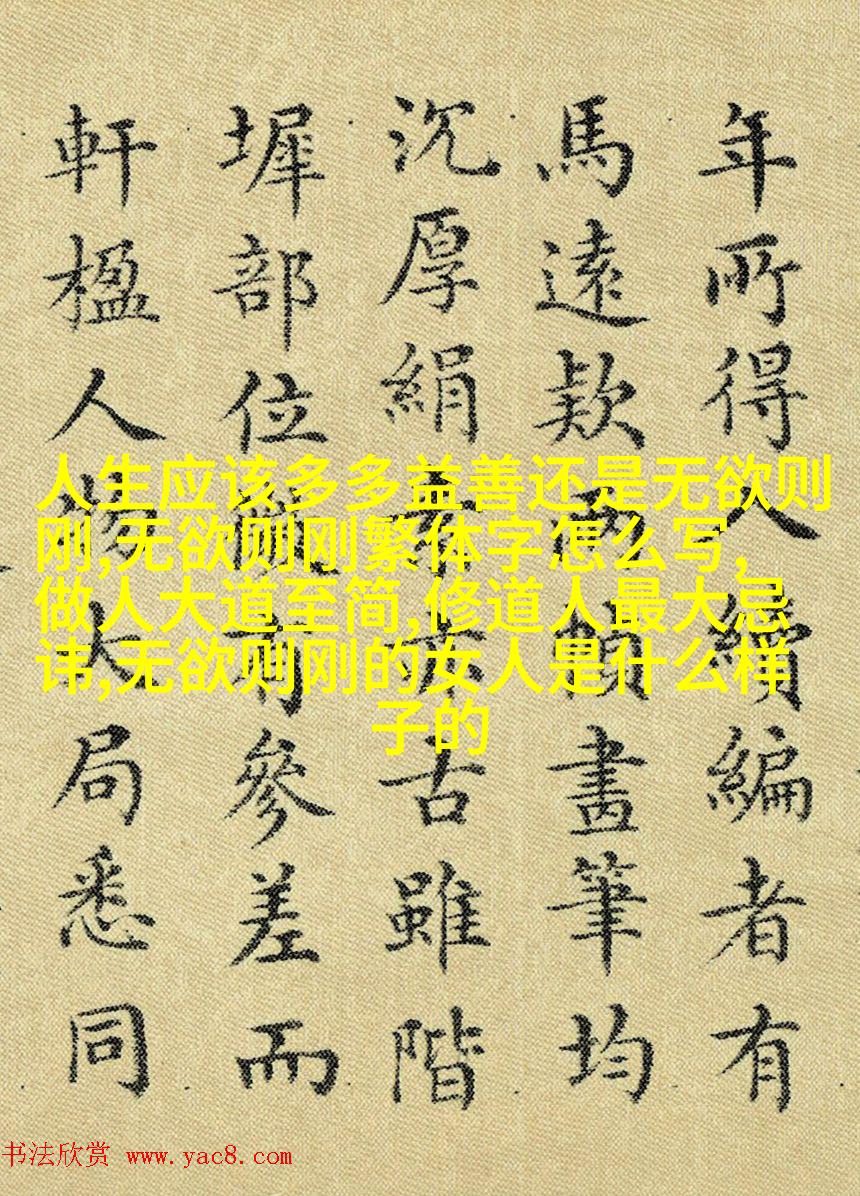 年所得人續編者有
馬遠款畫筆均
沉厚絹素亦古雖階
墀部位有參差而
軒楹人物大局悉同
人生应该多多益善还是无欲则
刚,无欲则刚繁体字怎么写,
做人大道至简,修道人最大忌
讳,无欲则刚的女人是什么样
子的
书法欣赏 www.yac8.com